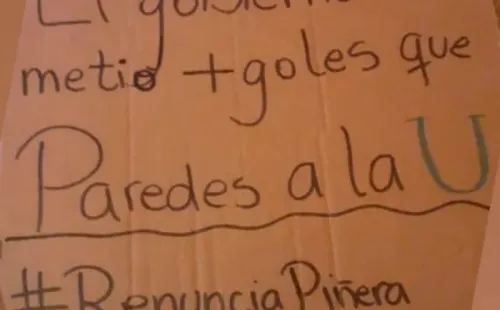 El gobierno
metio + goles que
Paredes a la U
#RenunciaPiñera